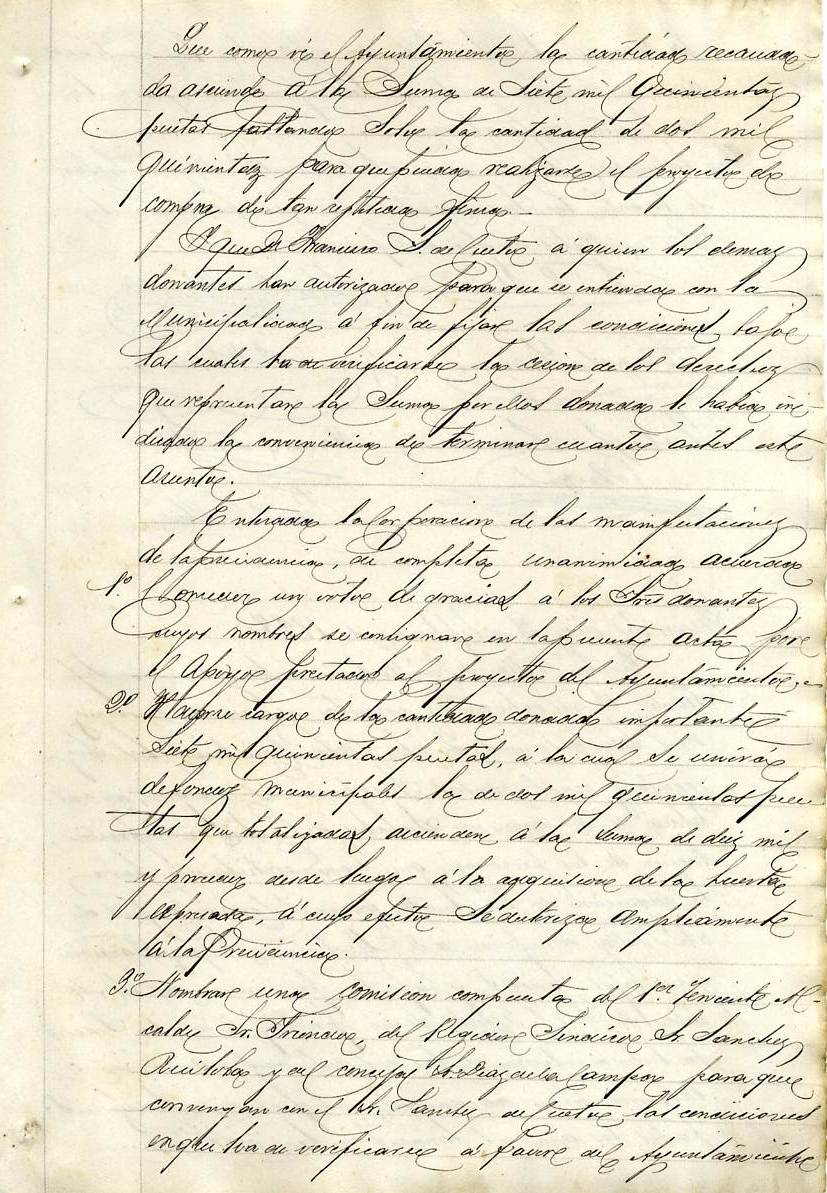 Que como vé el Ayuntamiento la cantidad recauda-
da asciende á la Suma de Siete mil Quinientas
pesetas faltando Solo la cantidad de dos mil
quinientas para que pueda realizarse el proyecto de
compra de tan repetida finca.-
Y que Dn Francisco S. de Cueto á quien los demas
donantes han autorizado para que se entienda con la
Municipalidad á fin de fijar las condiciones bajo
las cuales ha de verificarse la cesion de los derechos
que representan la Suma por ellos donada le habia in-
dicado la conveniencia de terminar cuanto antes este
asunto.
Enterada la Corporacion de las manifestaciones
de la presidencia, de completa unanimidad acuerda
1.º Conceder un voto de gracias á los Sres donantes
cuyos nombres se consignan en la presente acta por
el Apoyo prestado al proyecto del Ayuntamiento.-
2.º Hacerse cargo de la cantidad donada importante
Siete mil quinientas pesetas, á la cual se unirán
de fondos municipales la de dos mil quinientas pese
tas que totalizadas ascienden á la Suma de diez mil
y proceder desde luego á la adquisicion de la huerta
expresada, á cuyo efecto Se autoriza ampliamente
á la Presidencia.
3.º Nombrar una comision compuesta del 1.er Teniente Al-
calde Sr. del Regidor Sindico Sr. Sanchez
y del concejal Sr. Diaz de la Campa para que
convengan con el Sr. Sanchez de Cueto las condiciones
en que ha de verificarse á favor del Ayuntamiento